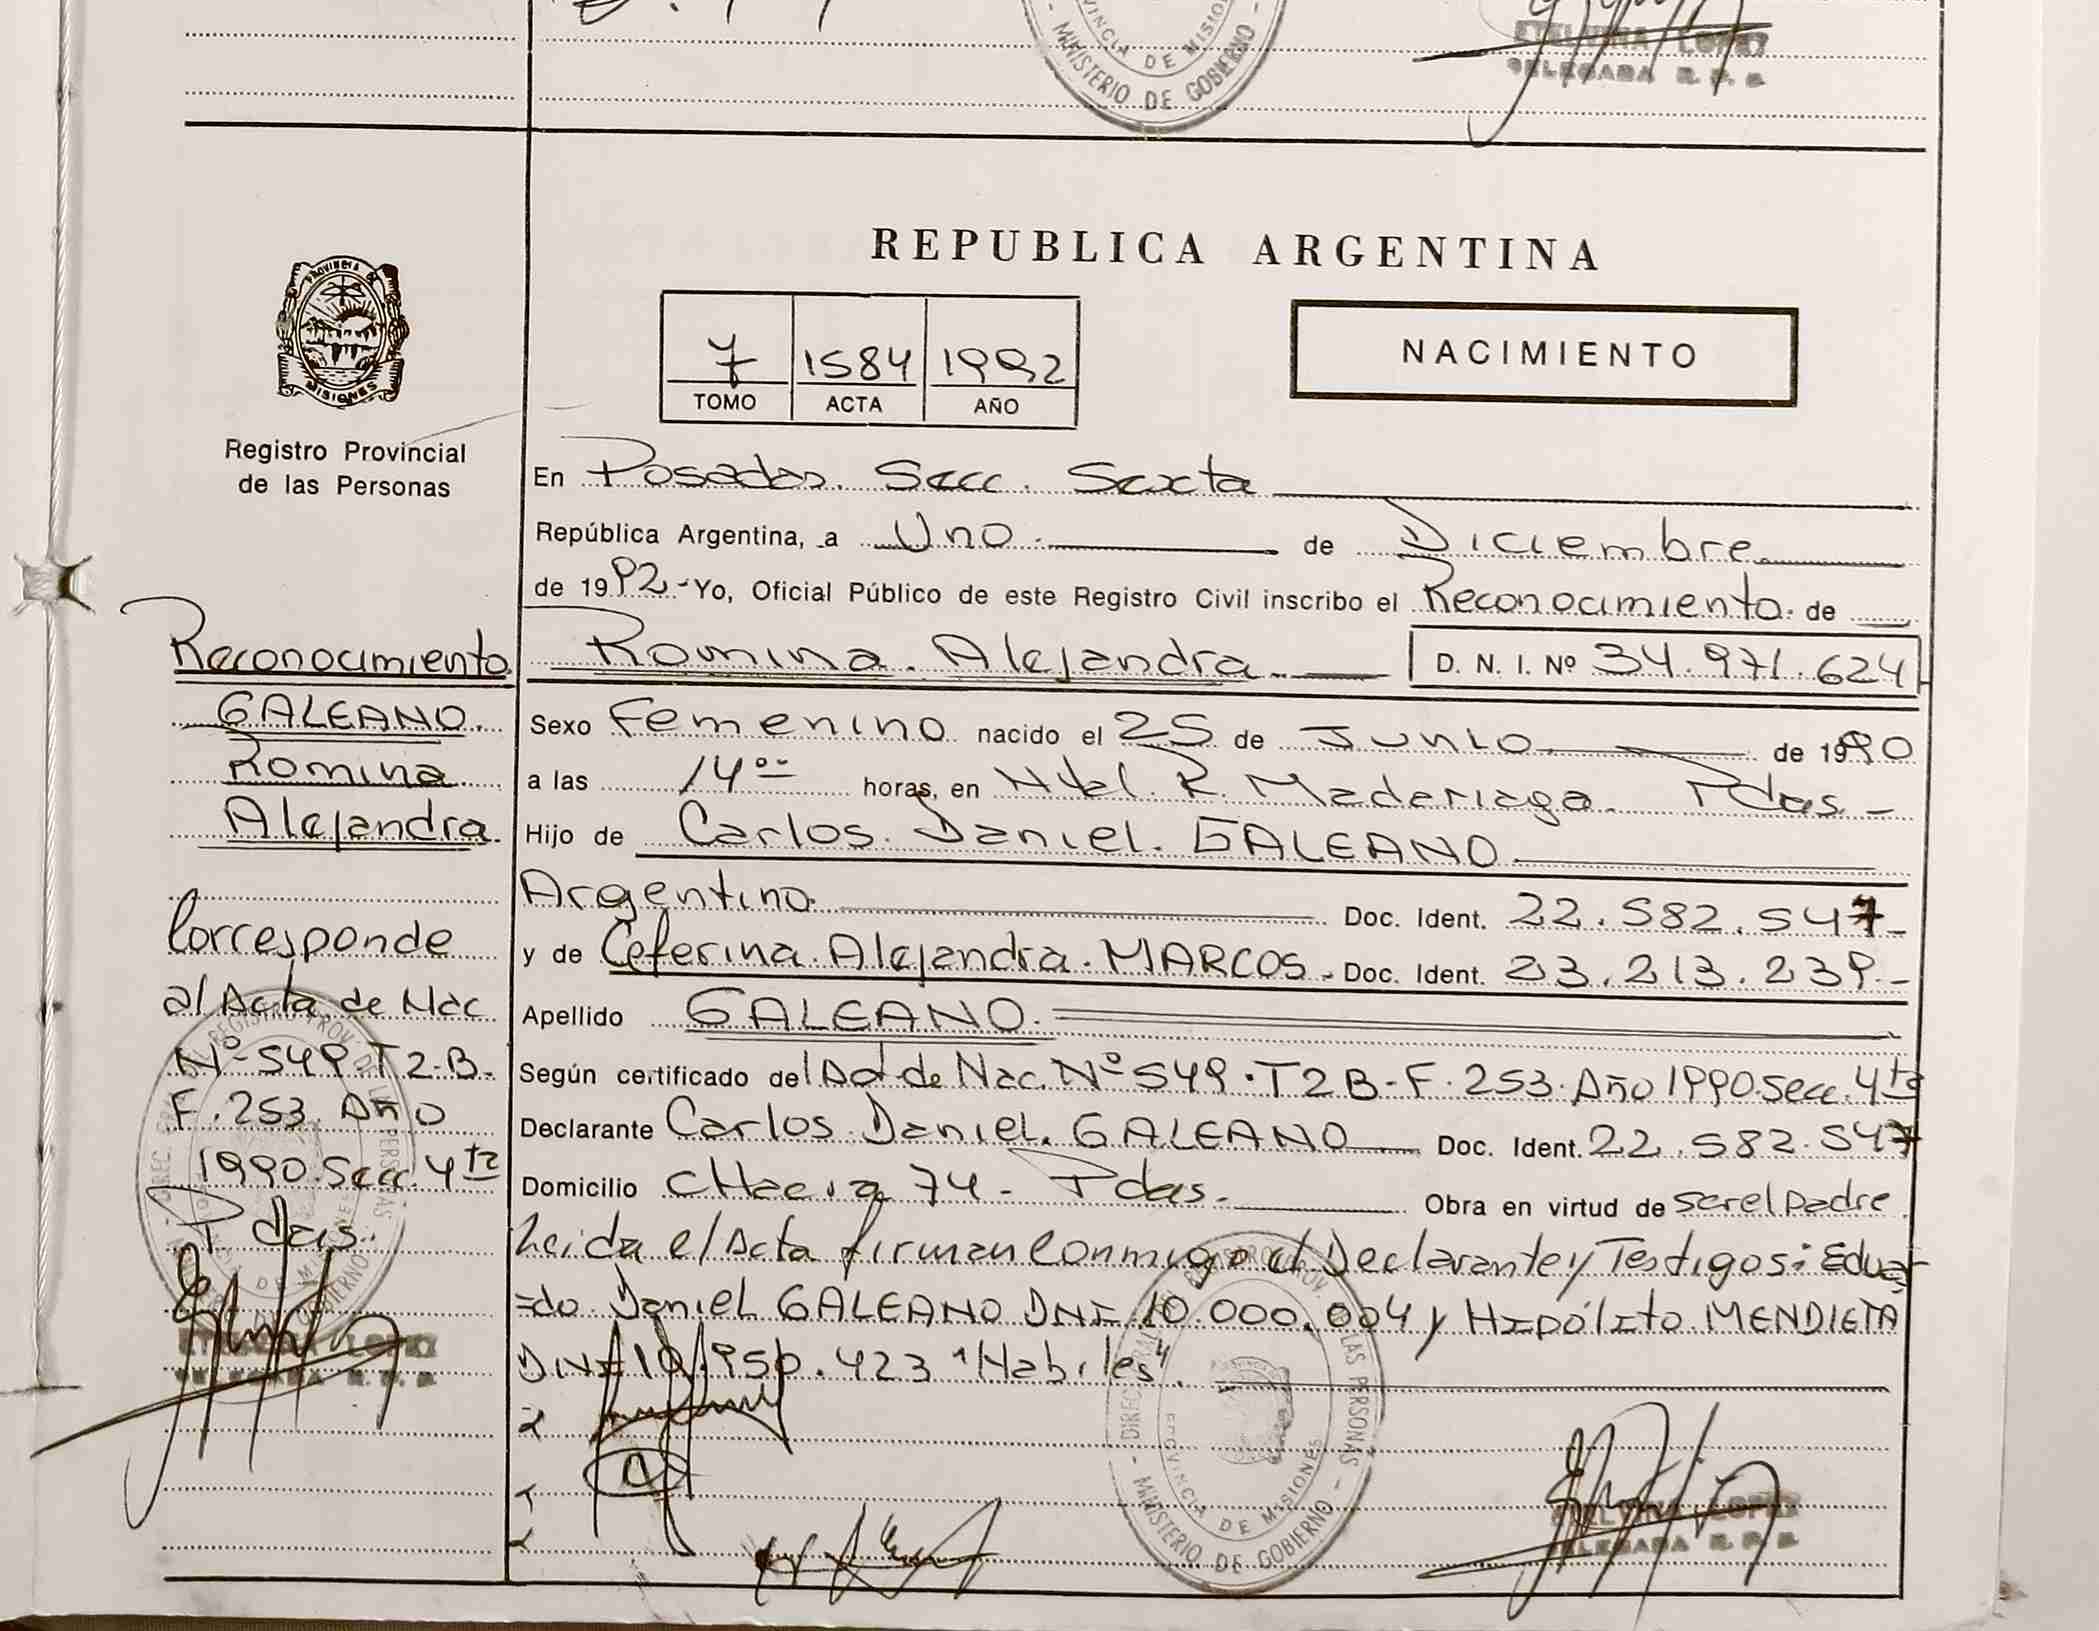 MINISTERIO DE GOBIERNO
PROVINCIA DE MISIONES
ETELVINA LOPEZ
DELEGADA R. P. P.
REPUBLICA ARGENTINA
PROVINCIA DE
MISIONES
7 1584 1992
TOMO ACTA AÑO
NACIMIENTO
Registro Provincial
de las Personas
En Posadas. Secc. Sexta
República Argentina, a Uno. de Diciembre
de 1992.- Yo, Oficial Público de este Registro Civil inscribo el Reconocimiento. de
Romina. Alejandra. D. N. I. Nº 34.971.624
Sexo Femenino nacido el 25 de Junio de 1990
a las 14⁰⁰ horas, en Htal. R. Madariaga. Pdas.-
Hijo de Carlos. Daniel. GALEANO
Argentino. Doc. Ident. 22.582.547-
y de Ceferina. Alejandra. MARCOS. Doc. Ident. 23.213.239.-
Apellido GALEANO.
Según certificado del Act de Nac. Nº 549. T2B-F.253. Año 1990. Secc. 4ta
Declarante Carlos Daniel. GALEANO Doc. Ident. 22.582.547
Domicilio cHacra 74- Pdas. Obra en virtud de ser el padre
Leida el Acta firman Conmigo el Declarante y Testigos: Eduar
=do Daniel GALEANO DNI 10.000.004 y HIPÓLITO MENDIETA
DNI 10.950.423 "Habiles".
Reconocimiento
GALEANO.
Romina
Alejandra.
Corresponde
al Acta de Nac
Nº 549 T2-B.
F.253. Año
1990. Secc. 4ta
Pdas.
ETELVINA LOPEZ
DELEGADA R. P. P.
DIREC. GRAL. REGISTRO PROV. DE LAS PERSONAS
PROVINCIA DE MISIONES
MINISTERIO DE GOBIERNO
ETELVINA LOPEZ
DELEGADA R. P. P.